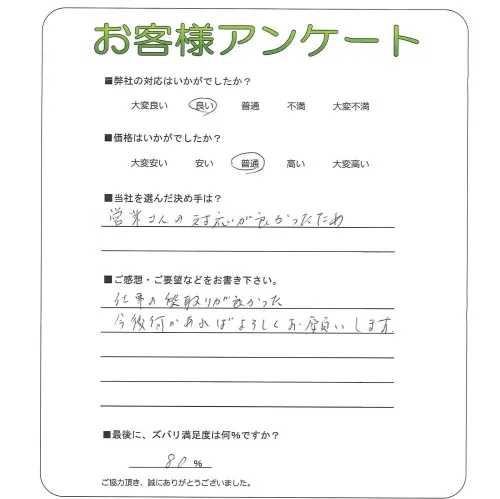 お客様アンケート
■弊社の対応はいかがでしたか？
大変良い 良い 普通 不満 大変不満
■価格はいかがでしたか？
大変安い 安い 普通 高い 大変高い
■当社を選んだ決め手は？
営業さんの対応が良かったため
■ご感想・ご要望などをお書き下さい。
仕事の段取りが良かった
今後何かあればよろしくお願いします.
■最後に、ズバリ満足度は何%ですか？
80 %
ご協力頂き、誠にありがとうございました。